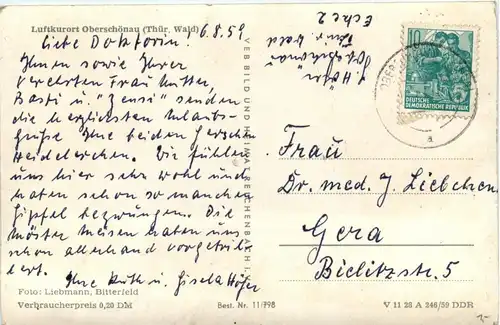 Luftkurort Oberschönau (Thür. Wald)
6.8.59
Liebe Doktorin!
Ihnen sowie Ihrer
verehrten Frau Mutter,
Basti u. "Zensi" senden
die herzlichsten Urlaubs-
grüße Ihre beiden
Heidelerchen. Wir fühlen
uns hier sehr wohl und
haben schon so manchen
Gipfel bezwungen. Die
haben uns
schon allerhand
Ihre Ruth u. Gisela Höfer
Foto: Liebmann, Bitterfeld
Verbraucherpreis 0,20 DM
Best. Nr. 11/798
VEB BILD UND HEIMAT REICHENBACH I. V.
10
DEUTSCHE
DEMOKRATISCHE REPUBLIK
Frau
Dr. med. J. Liebchen
Gera
Bielitzstr. 5
V 11 28 A 246/59 DDR